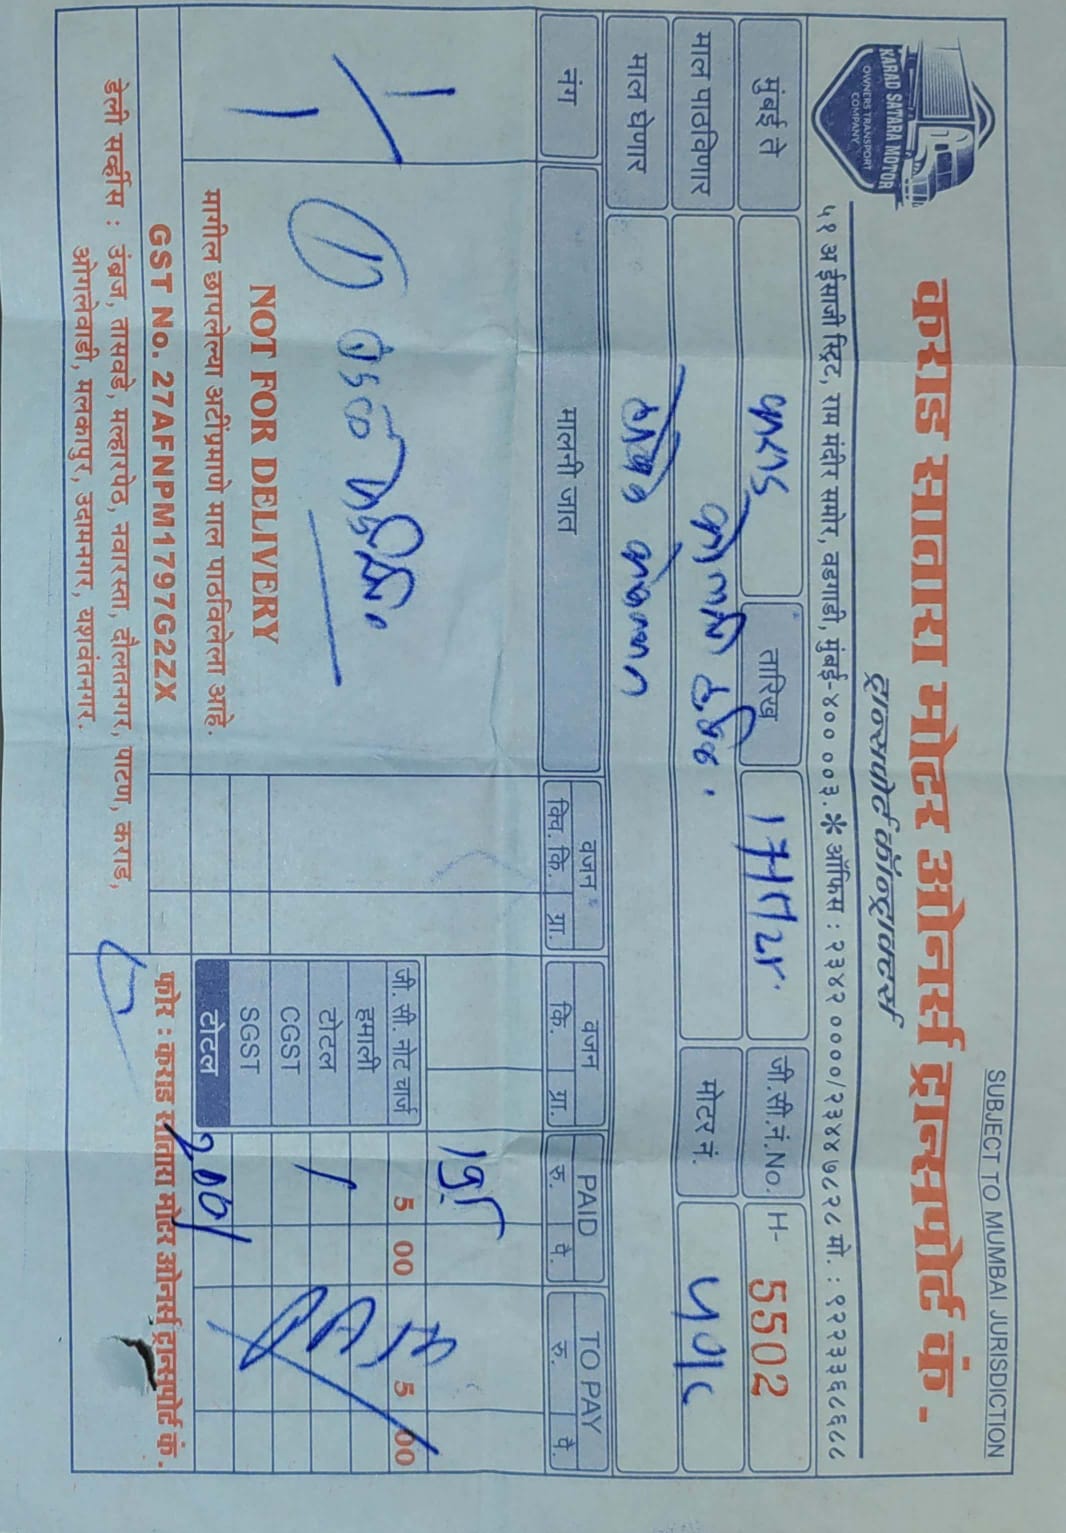 SUBJECT TO MUMBAI JURISDICTION
KARAD SATARA MOTOR
OWNERS TRANSPORT
COMPANY
कराड सातारा मोटर ओनर्स ट्रान्सपोर्ट कं.
ट्रान्सपोर्ट कॉन्ट्रॅक्टर्स
५१ अ ईसाजी स्ट्रिट, राम मंदीर समोर, वडगादी, मुंबई-४०० ००३. * ऑफिस : २३४२ ००००/२३४४७८२८ मो. : ९२२३३६८६८८
मुंबई ते
तारिख
जी.सी.नं.No. H- 5502
माल पाठविणार
मोटर नं.
माल घेणार
नंग मालनी जात वजन वजन PAID TO PAY
क्वि. कि. ग्रा. कि. ग्रा. रु. पै. रु. पै.
195
जी. सी. नोट चार्ज 5 00 5 00
हमाली
टोटल
CGST
SGST
टोटल 200/
NOT FOR DELIVERY
मागील छापलेल्या अटींप्रमाणे माल पाठविलेला आहे.
GST No. 27AFNPM1797G2ZX
डेली सर्व्हीस : उंब्रज, तासवडे, मल्हारपेठ, नवारस्ता, दौलतनगर, पाटण, कराड,
ओगलेवाडी, मलकापुर, उद्यमनगर, यशवंतनगर.
फोर : कराड सातारा मोटर ओनर्स ट्रान्सपोर्ट कं.